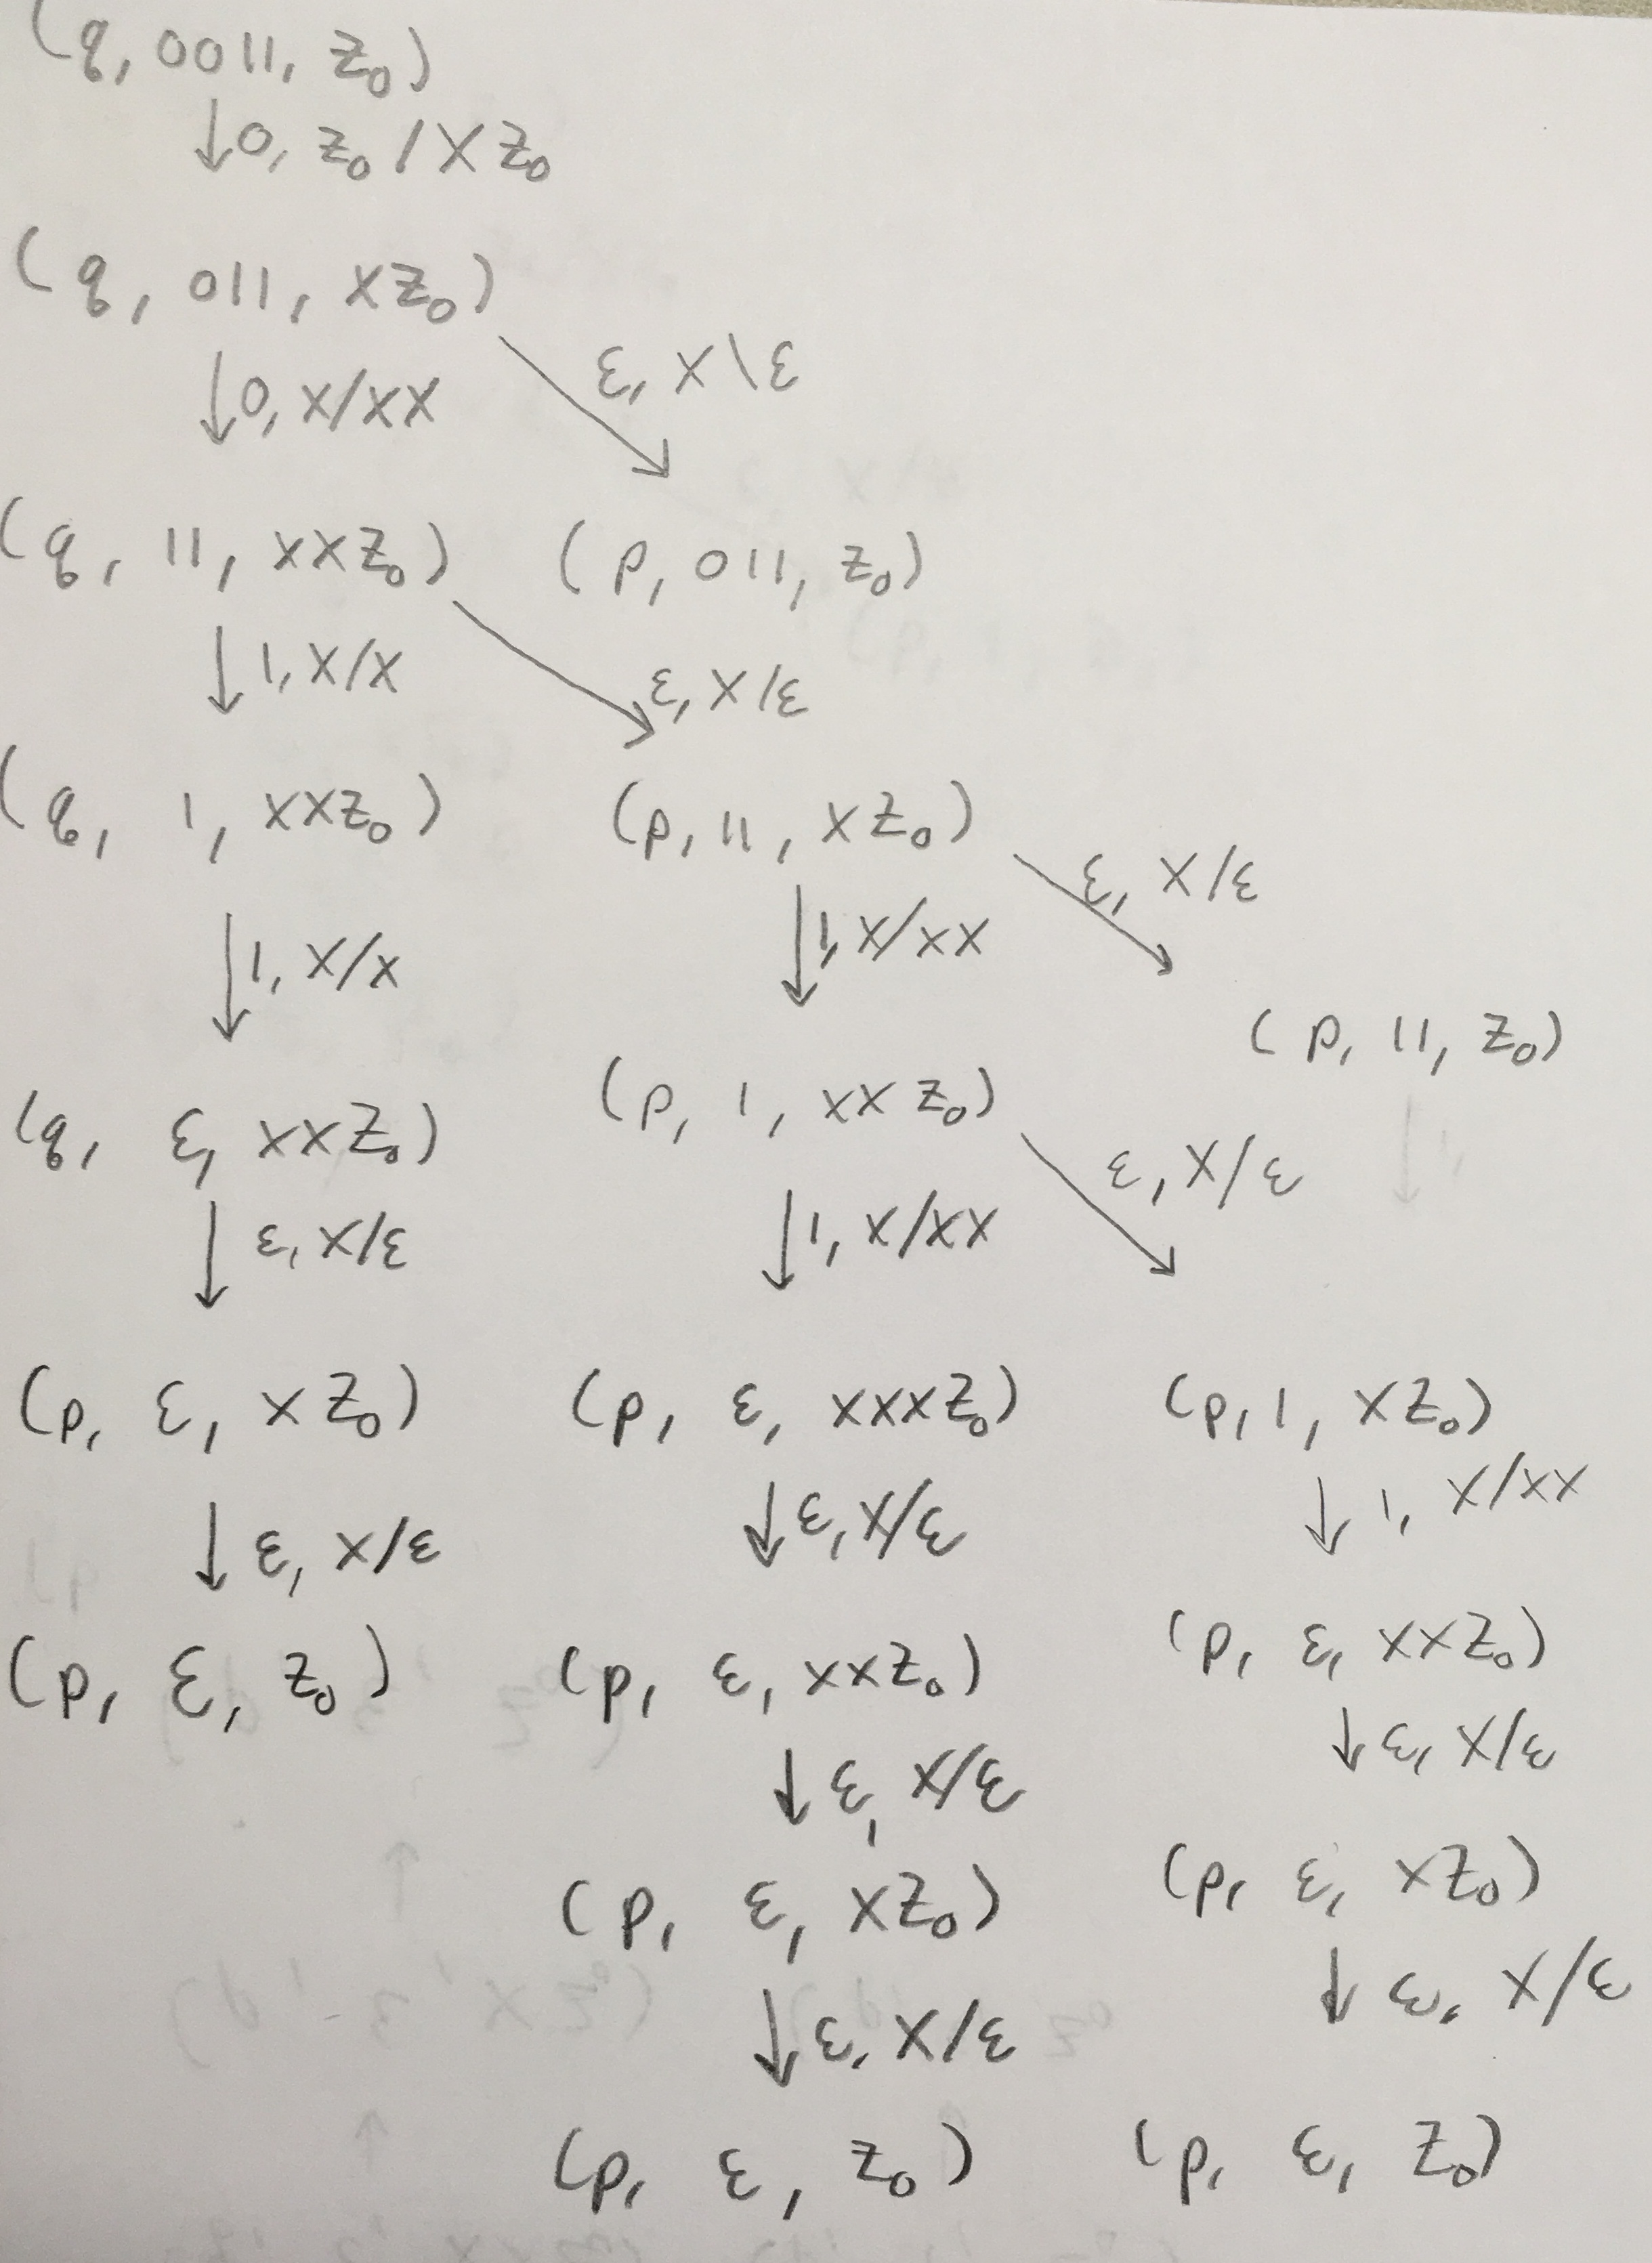 (q, 0011, z₀)
↓ 0, z₀/Xz₀
(q, 011, Xz₀)
↓ 0, X/XX ↘ ε, X\ε
(q, 11, XXz₀) (p, 011, z₀)
↓ 1, X/X ↘ ε, X/ε
(q, 1, XXz₀) (p, 11, Xz₀)
↓ 1, X/X ↓ 1, X/XX ↘ ε, X/ε
(p, 11, z₀)
(q, ε, XXz₀) (p, 1, XXz₀)
↓ ε, X/ε ↓ 1, X/XX ↘ ε, X/ε
(p, ε, Xz₀) (p, ε, XXXz₀) (p, 1, Xz₀)
↓ ε, X/ε ↓ ε, X/ε ↓ 1, X/XX
(p, ε, z₀) (p, ε, XXz₀) (p, ε, XXz₀)
↓ ε, X/ε ↓ ε, X/ε
(p, ε, Xz₀) (p, ε, Xz₀)
↓ ε, X/ε ↓ ε, X/ε
(p, ε, z₀) (p, ε, z₀)